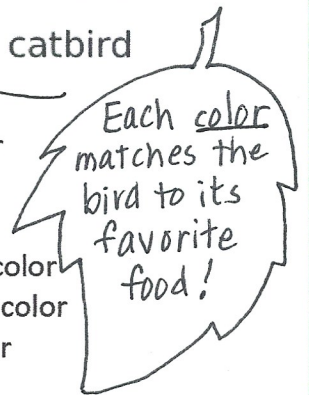 catbird
Each color
matches the
bird to its
favorite
food!
color
color
r